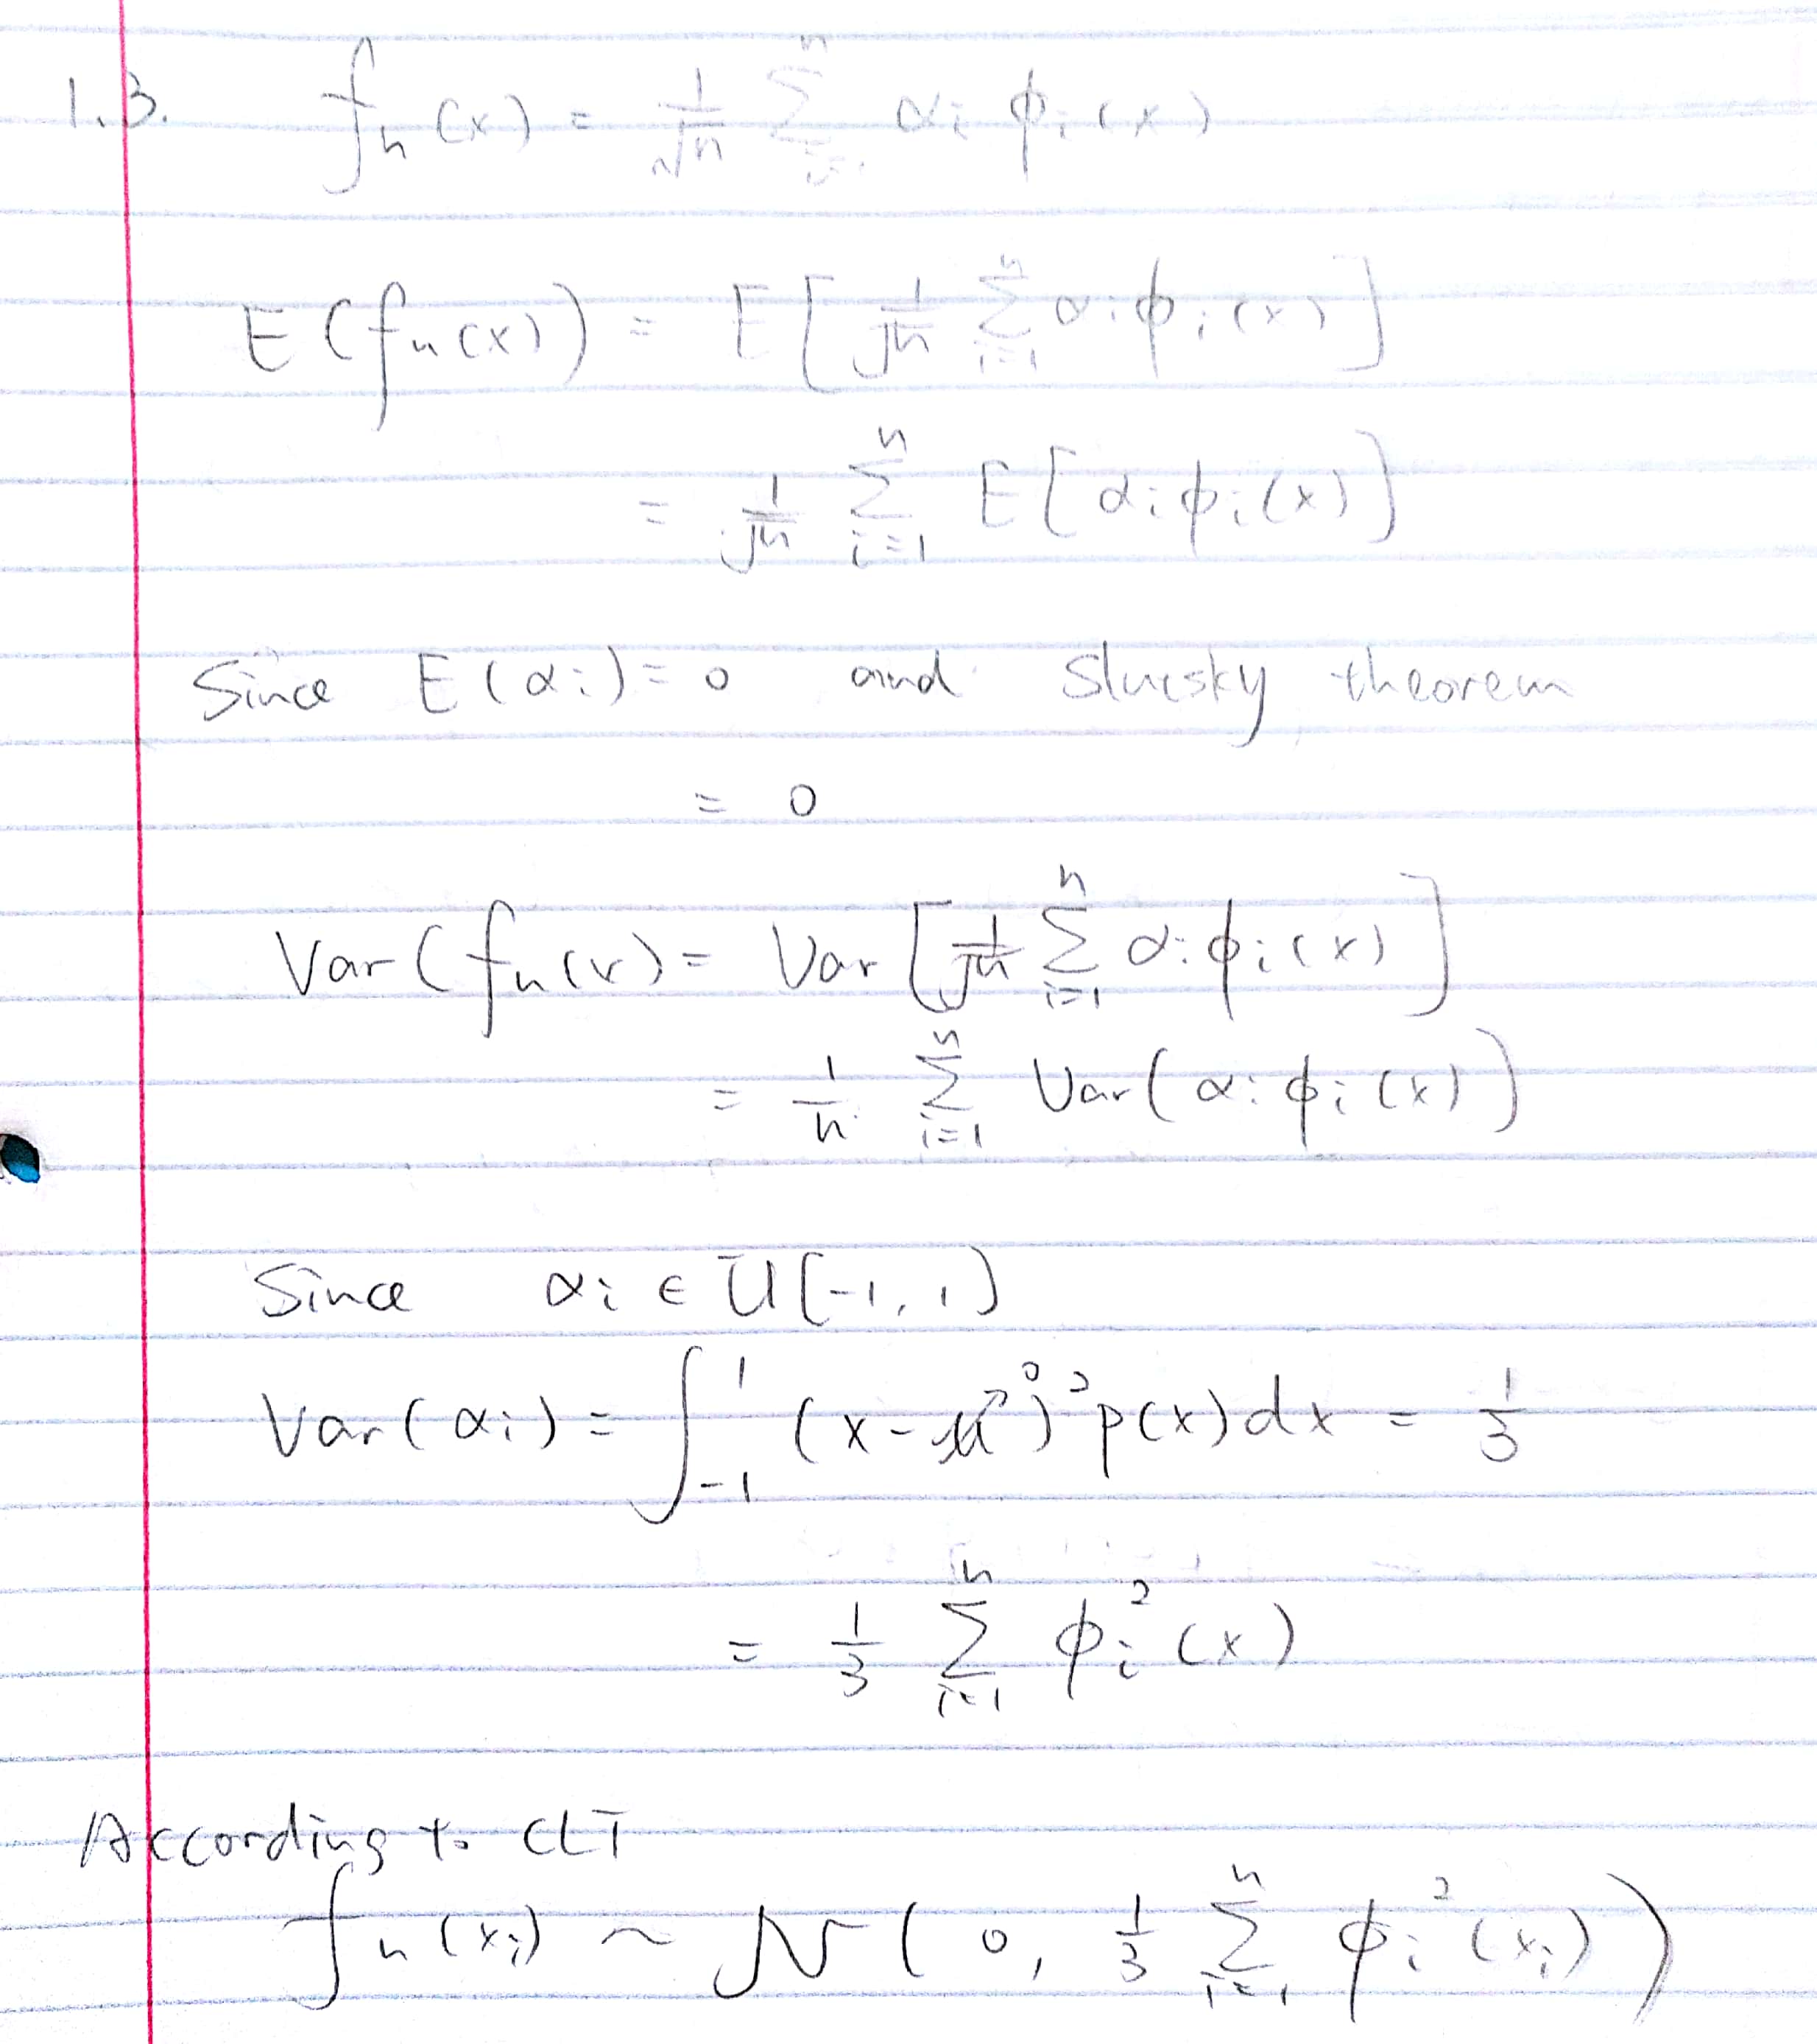 1.3. fₙ(x) = 1/√n Σᵢ₌₁ⁿ αᵢ ϕᵢ(x)
E(fₙ(x)) = E[1/√n Σᵢ₌₁ⁿ αᵢϕᵢ(x)]
= 1/√n Σᵢ₌₁ⁿ E[αᵢϕᵢ(x)]
Since E(αᵢ) = 0 and Slucsky theorem
= 0
Var(fₙ(x) = Var[1/√n Σᵢ₌₁ⁿ αᵢϕᵢ(x)]
= 1/n Σᵢ₌₁ⁿ Var(αᵢϕᵢ(x))
Since αᵢ ∈ U[-1, 1]
Var(αᵢ) = ∫₋₁¹ (x-μ↗⁰)² p(x)dx = 1/3
= 1/3 Σᵢ₌₁ⁿ ϕᵢ²(x)
According to CLT
fₙ(xᵢ) ~ N(0, 1/3 Σᵢ₌₁ⁿ ϕᵢ²(xᵢ))